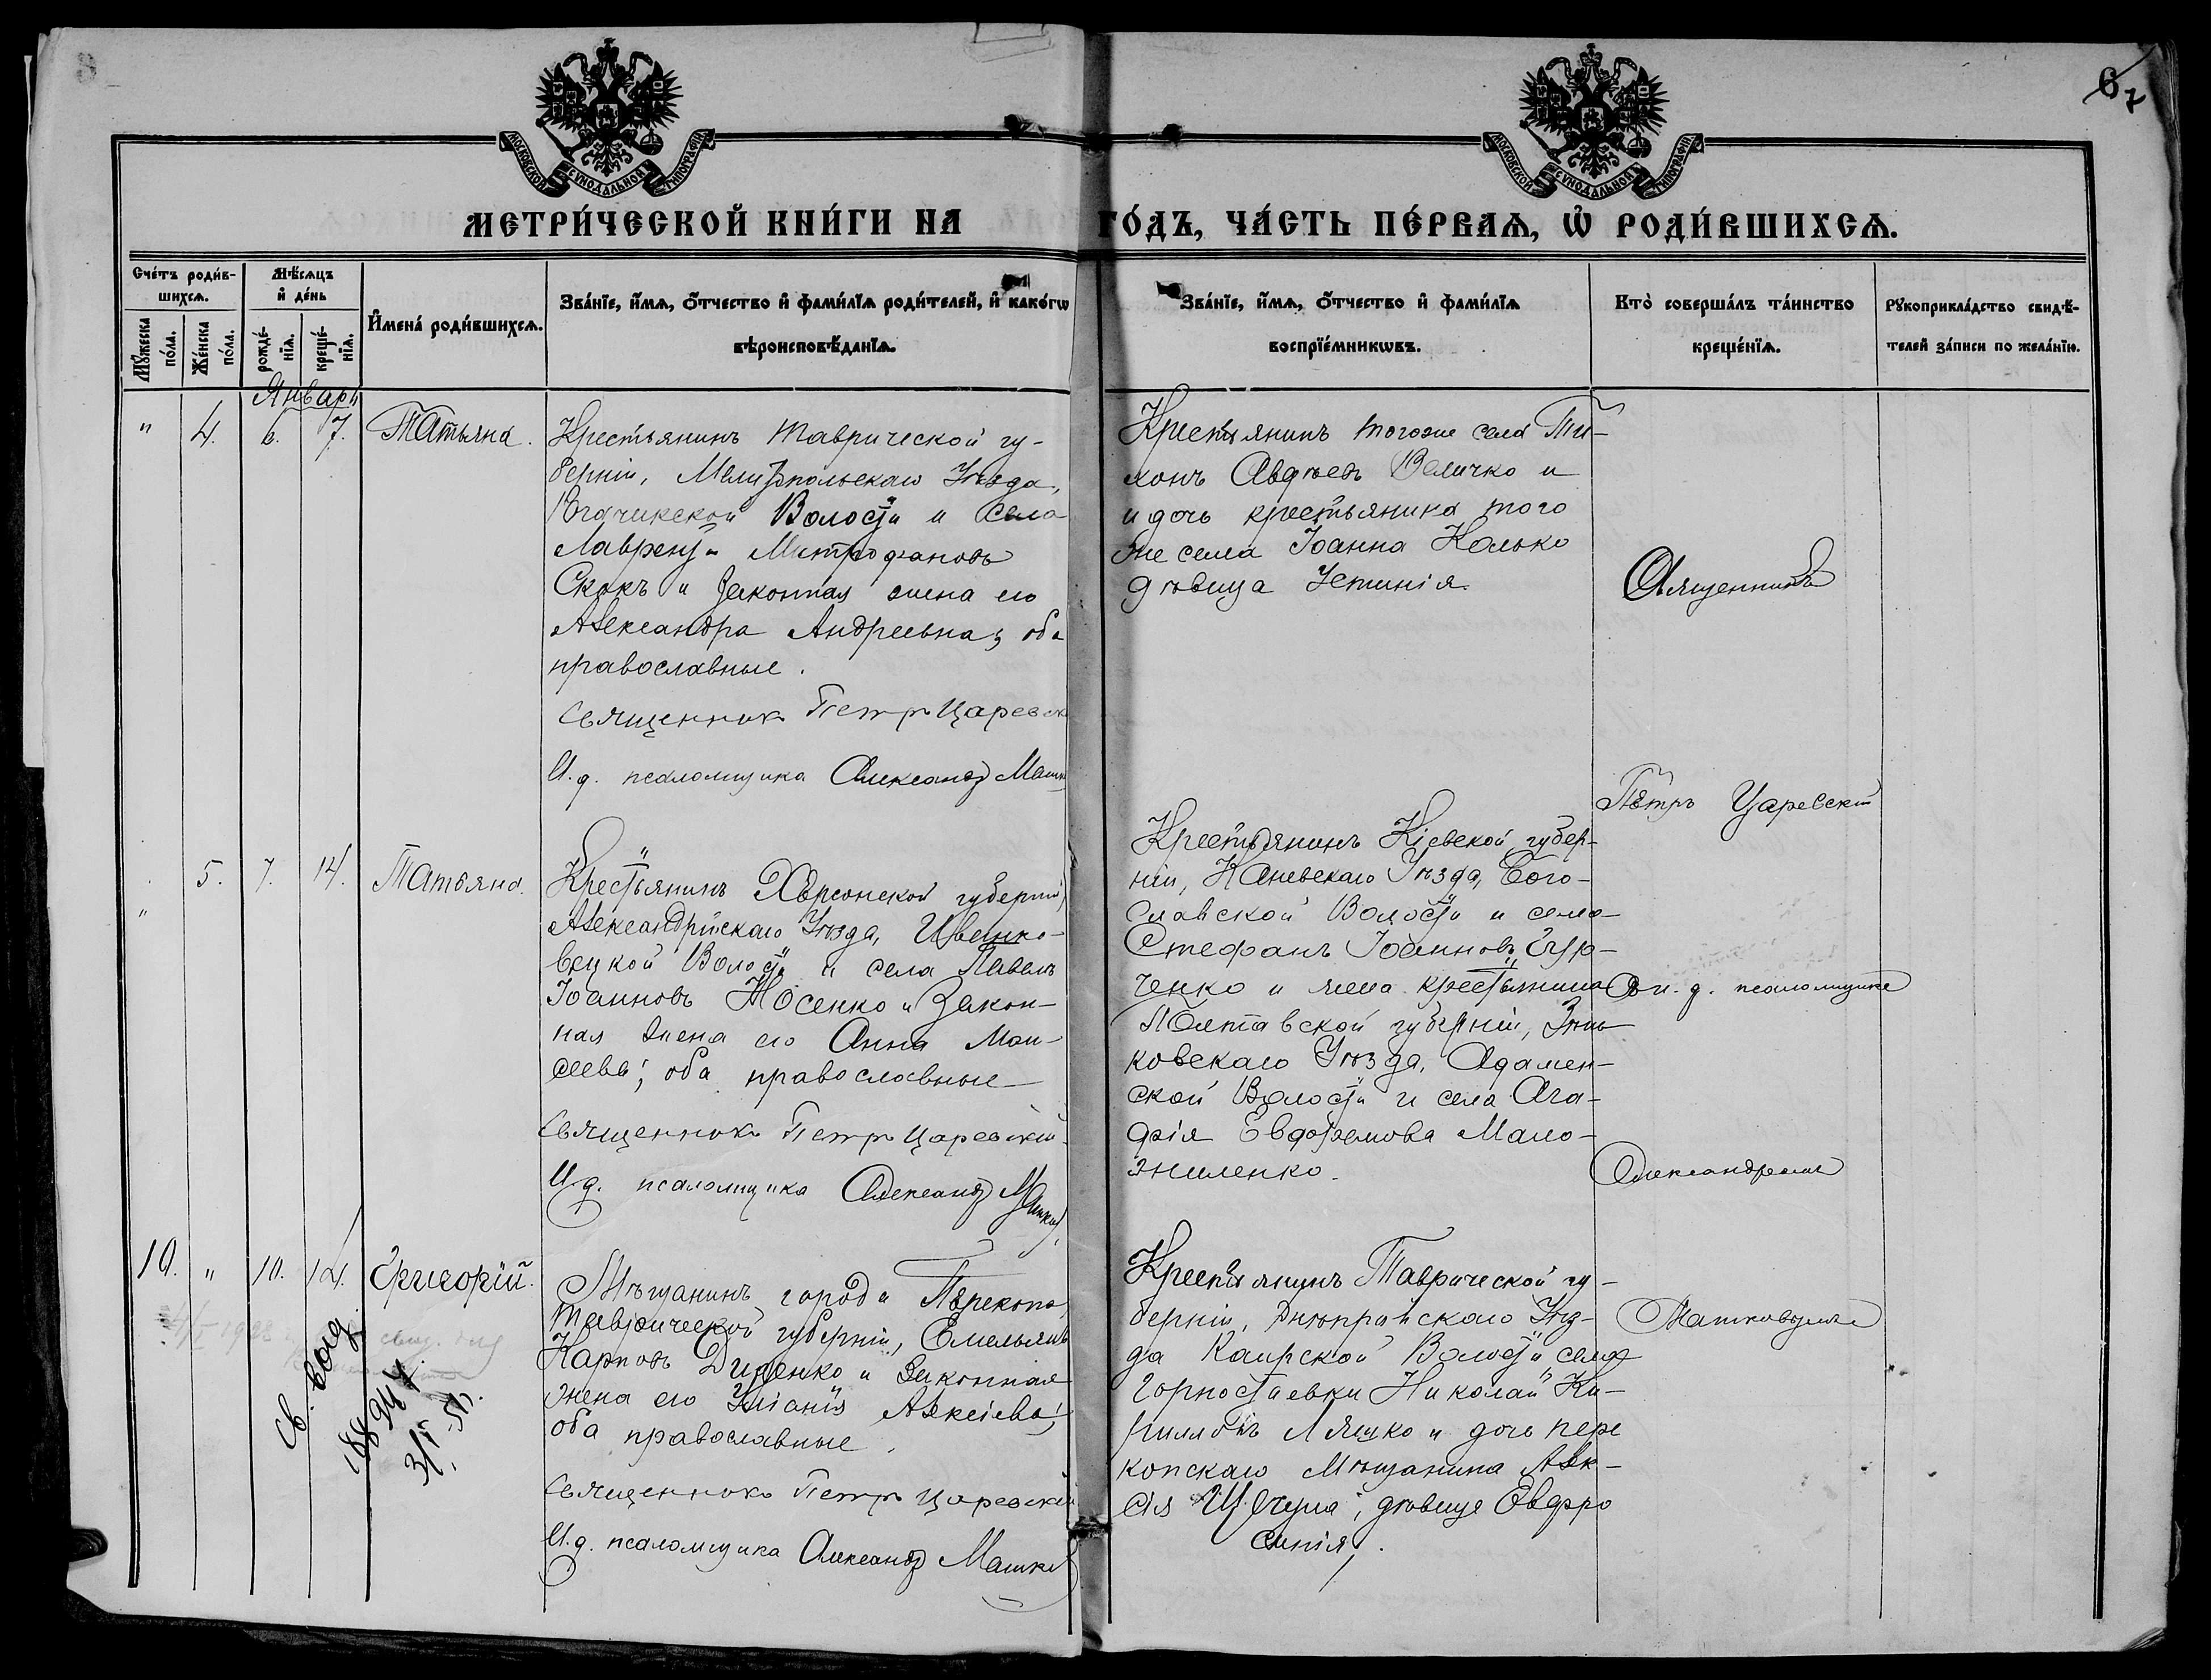 6 7
МОСКОВСКОЙ СѴНОДАЛЬНОЙ ТИПОГРАФІИ
МОСКОВСКОЙ СѴНОДАЛЬНОЙ ТИПОГРАФІИ
МЕТРИ́ЧЕСКОЙ КНИ́ГИ НА ГО́ДЪ, ЧА́СТЬ ПЕ́РВАѦ, Ѡ҆ РОДИ́ВШИХСѦ.
Сче́тъ роди́в-
шихсѧ.
Мѣ́сѧцъ
и҆ де́нь
И҆мена́ роди́вшихсѧ.
Зва́нїе, и҆́мѧ, ѻ҆́тчество и҆ фами́лїѧ роди́телей, и҆ како́гѡ
вѣроисповѣ́данїѧ.
Зва́нїе, и҆́мѧ, ѻ҆́тчество и҆ фами́лїѧ
воспрїе́мникѡвъ.
Кто̀ соверша́лъ та́инство
креще́нїѧ.
Рꙋкоприкла́дство свидѣ́-
телей за́писи по жела́нїю.
Мꙋ́жеска
по́ла.
Же́нска
по́ла.
рожде́-
нїѧ.
креще́-
нїѧ.
Январи
" 4. 6. 7. Татьяна.
Крестьянинъ Таврической гу-
берніи, Мелитопольскаго Уѣзда,
Волости и села
Лаврентій Митрофановъ
Скокъ и законная жена его
Александра Андреевна, оба
православные.
Священникъ Петръ Царевск
И.д. псаломщика Александръ Машк
Крестьянинъ тогоже села Ти-
хонъ Авдѣевъ Величко и
и дочь крестьянина того
же села Іоанна Колько
дѣвица Устинія.
Священникъ
Петръ Царевскій
" 5. 7. 14. Татьяна.
Крестьянинъ Херсонской губерніи,
Александрійскаго Уѣзда, Иванко-
вецкой Волости и села Павелъ
Іоанновъ Мосенко и Закон-
ная жена его Анна Мои-
сеева; оба православные
Священникъ Петръ Царевскій
И.д. псаломщика Александръ Машков
Крестьянинъ Кіевской губер-
ніи, Каневскаго Уѣзда, Бого-
славской Волости и села
Стефанъ Іоанновъ Гур-
ченко и жена крестьянина
Полтавской губерніи, Зень-
ковскаго Уѣзда, Адамен-
ской Волости и села Ага-
фія Евфремова Мало-
жиленко.
Съ и. д. псаломщика
Александромъ
10. " 10. 14. Григорій.
Мѣщанинъ города Перекопа,
Таврической губерніи, Емельянъ
Карповъ Диденко и законная
жена его Уліанія Алексіева;
оба православные.
Священникъ Петръ Царевскій
И.д. псаломщика Александръ Машков
Крестьянинъ Таврической гу-
берніи, Днѣпрайскаго Уѣз-
да Каирской Волости, села
Горностаевки Николай Ки-
рилловъ Ляшко и дочь пере
копскаго Мѣщанина Алек-
сія Щегула; дѣвица Евфро
синія.
Машковымъ
1928
св. выд.
188947
3/I-51.